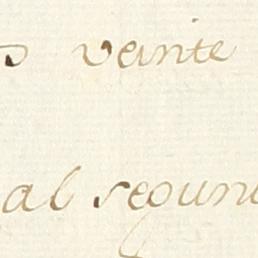 veinte
al segun